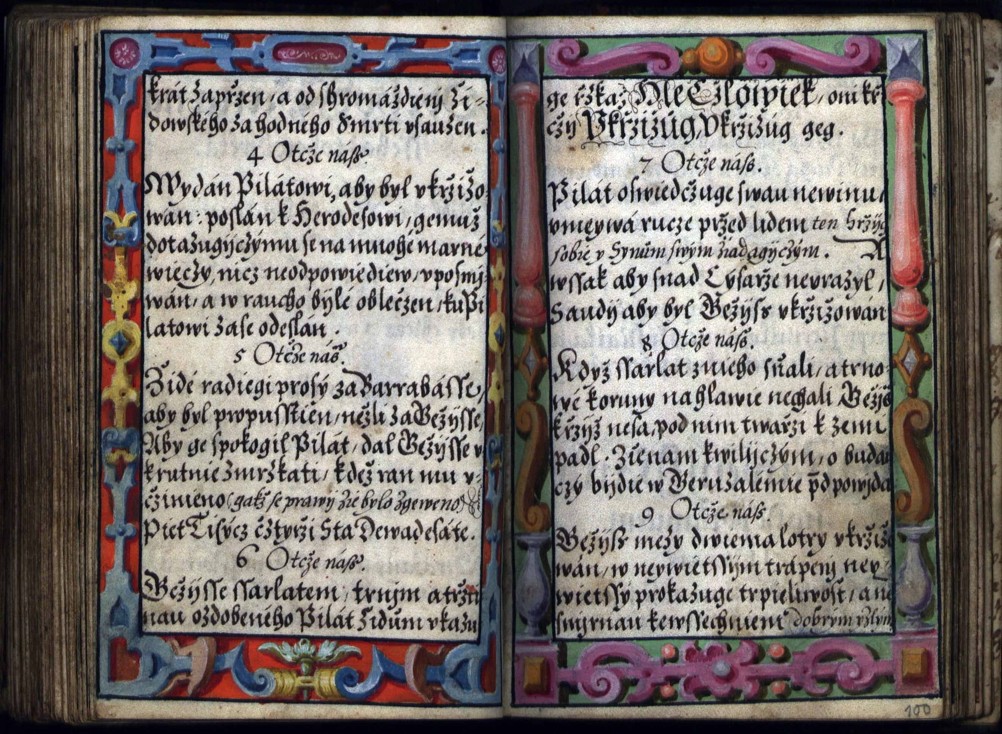 krát zapřzen, a od shromáždieni Ži-
dowského za hodného Smrti vsauzen.
4 Otcže náß.
Wydán Pilátowi, aby byl vkřižo
wán: poslán k Herodesowi, gemuž
dotazugijcžýmu se na mnohé marné
wieczy, nicz neodpowiediew, vposmij
wán, a w raucho býlé oblečzen, ku Pi
latowi zase odeslán.
5 Otcže náß.
Židé radiegi prosý za Barrabásse,
aby byl propusstien, nežli za Gežijsse,
Aby ge spokogil Pilát, dal Gežijsse v
krutnie zmrskati, kdež ran mu v-
cžinieno (gakž se prawij že bylo zgeweno)
Piet Tisýcz cžtyrzi Sta Dewadesáte.
6 Otcže náß.
Gežijsse ssarlatem, trnijm a trzti
nau ozdobeného Pilát Židům vkazu
ge rzka: Hle Czlowiek, oni kři
cžij Vkřižůg, Vkřižůg geg.
7 Otcže náß.
Pilát oswiedcžuge swau newinu,
vmeywá rucze przed lidem ten hržijch
sobie y Synům swým žádagijcžým. A
wssak aby snad Cysarze nevrazyl,
Saudij aby byl Gežijss vkřižowán
8 Otcže náß.
Když ssarlat z nieho sňali, a trno-
wé koruny na hlawie nechali Gežijs
křijž nesa, pod nim twarzi k zemi
padl. Ženám kwilijcžým, o budau
czý bijdie w Geruzalémie předpowijda
9 Otcže náß.
Gežijss mezy dwiema lotry vkřižo
wán, w neywietssým trápenj ney-
wietssý prokazuge trpieliwost, a ne
smijrnau kewssechniem dobrým y zlým
100